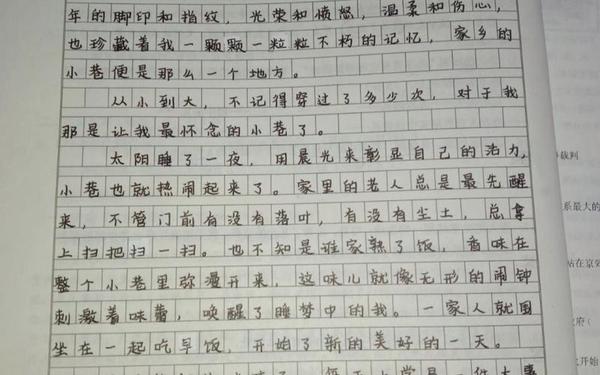 年的脚印和指纹，光荣和愤怒，温柔和伤心，
也珍藏着我一颗颗一粒粒不朽的记忆，家乡的
小巷便是那么一个地方。
从小到大，不记得穿过了多少次，对于我
那是让我最怀念的小巷了。
太阳睡了一夜，用晨光来彰显自己的活力，
小巷也就热闹起来了。家里的老人总是最先醒
来，不管门前有没有落叶，有没有尘土，总拿
上扫把扫一扫。也不知是谁家熟了饭，香味在
整个小巷里弥漫开来，这味儿就像无形的闹钟
刺激着味蕾，唤醒了睡梦中的我。一家人就围
坐在一起吃早饭，开始了新的美好的一天。
裁判
系最大的
站在京
政府（
开始